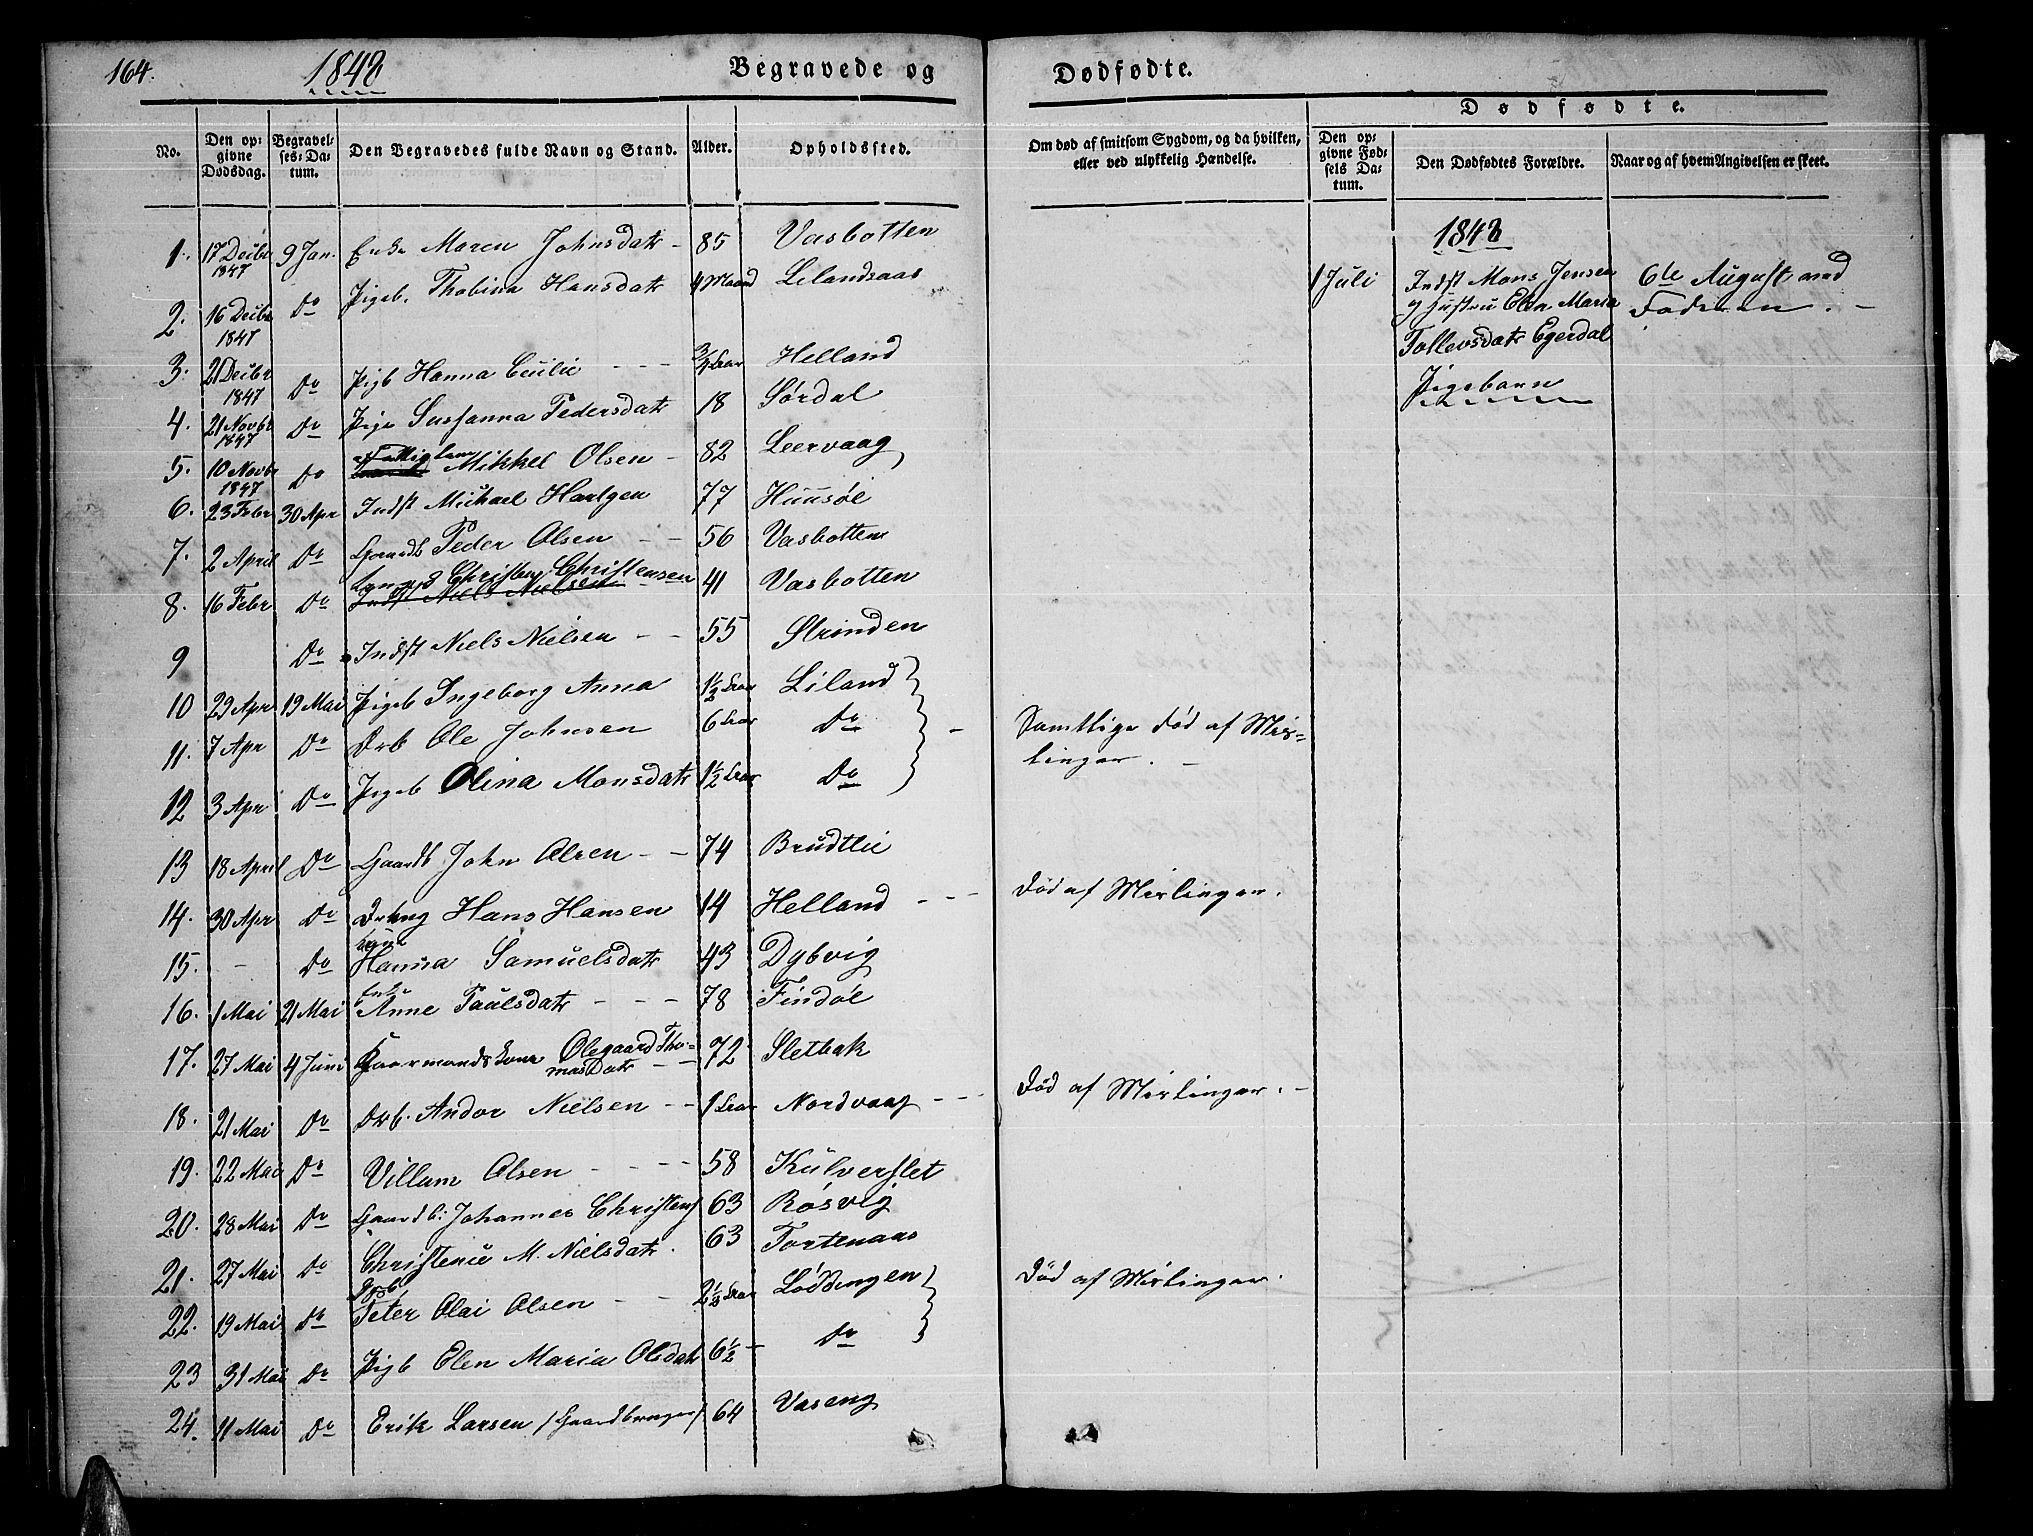 164.
1848
Begravede og Dødfødte.
Dødfødte.
No.
Den opgivne Dødsdag.
Begravelses-Datum.
Den Begravedes fulde Navn og Stand.
Alder.
Opholdssted.
Om død af smitsom Sygdom, og da hvilken, eller ved ulykkelig Hændelse.
Den opgivne Fødsels Datum.
Den Dødfødtes Forældre.
Naar og af hvem Angivelsen er skeet.
1. 17 Decbr 1847 9 Jan. Enke Maren Johnsdatr 85 Vasbotten
2. 16 Decbr 1847 Do Pigeb. Thobina Hansdatr 4 Maand Lilandsaas
3. 21 Decbr 1847 Do Pigb Hanna Cecilie 3/4 Aar Helland
4. 21 Novbr 1847 Do Pige Susanna Pedersdatr 18 Sørdal
5. 10 Novbr 1847 Do Fattiglem Mikkel Olsen 82 Leervaag
6. 23 Febr 30 Apr Indst Michael Hartgen 77 Huusøl
7. 2 April Do Gaardb Peder Olsen 56 Vasbotten
8. 16 Febr Do Christen Christensen 41 Vasbotten
Indst Niels Nielsen
9 Do Indst Niels Nielsen 55 Strinden
10 29 Apr 19 Mai Pigeb Ingeborg Anna 1 1/2 Aar Liland
11. 7 Apr Do Drb Ole Johnsen 6 Aar Do
Samtlige død af Mislinger.
12 3 Apr Do Pigeb Olina Monsdatr 1 1/2 Aar Do
13 18 April Do Gaardb John Olsen 74 Brudtlie
14. 30 Apr Do Dreng Hans Hansen 14 Helland død af Mislinger.
15. - Do Hanna Samuelsdatr 43 Dybvig
16. 1 Mai 21 Mai Enke Anne Paulsdatr 78 Findøl
17. 27 Mai 4 Juni Kaarmandskone Olegaard Thomasdatr 72 Sletbak
18. 21 Mai Do Drb. Andor Nielsen 1 Aar Nordvaag død af Mislinger.
19. 22 Mai Do Villum Olsen 58 Kulverslet
20. 28 Mai Do Gaardb: Johannes Christens 63 Røsvig
21. 27 Mai Do Christence M. Nielsdatr. 63 Fortenaas
22. 19 Mai Do Peter Olai Olsen 2 1/2 Aar Løddingen død af Mislinger.
23 31 Mai Do Pigb Elen Maria Olsdatr 6 1/2 Do
24. 11 Mai Do Erik Larsen /Gaardbruger/ 64 Vaseng
1848
1 Juli Indst Mons Jensen 6te August ved
og Hustru Elen Maria Faderen.
Tollevsdatr Egerdal
Pigebarn